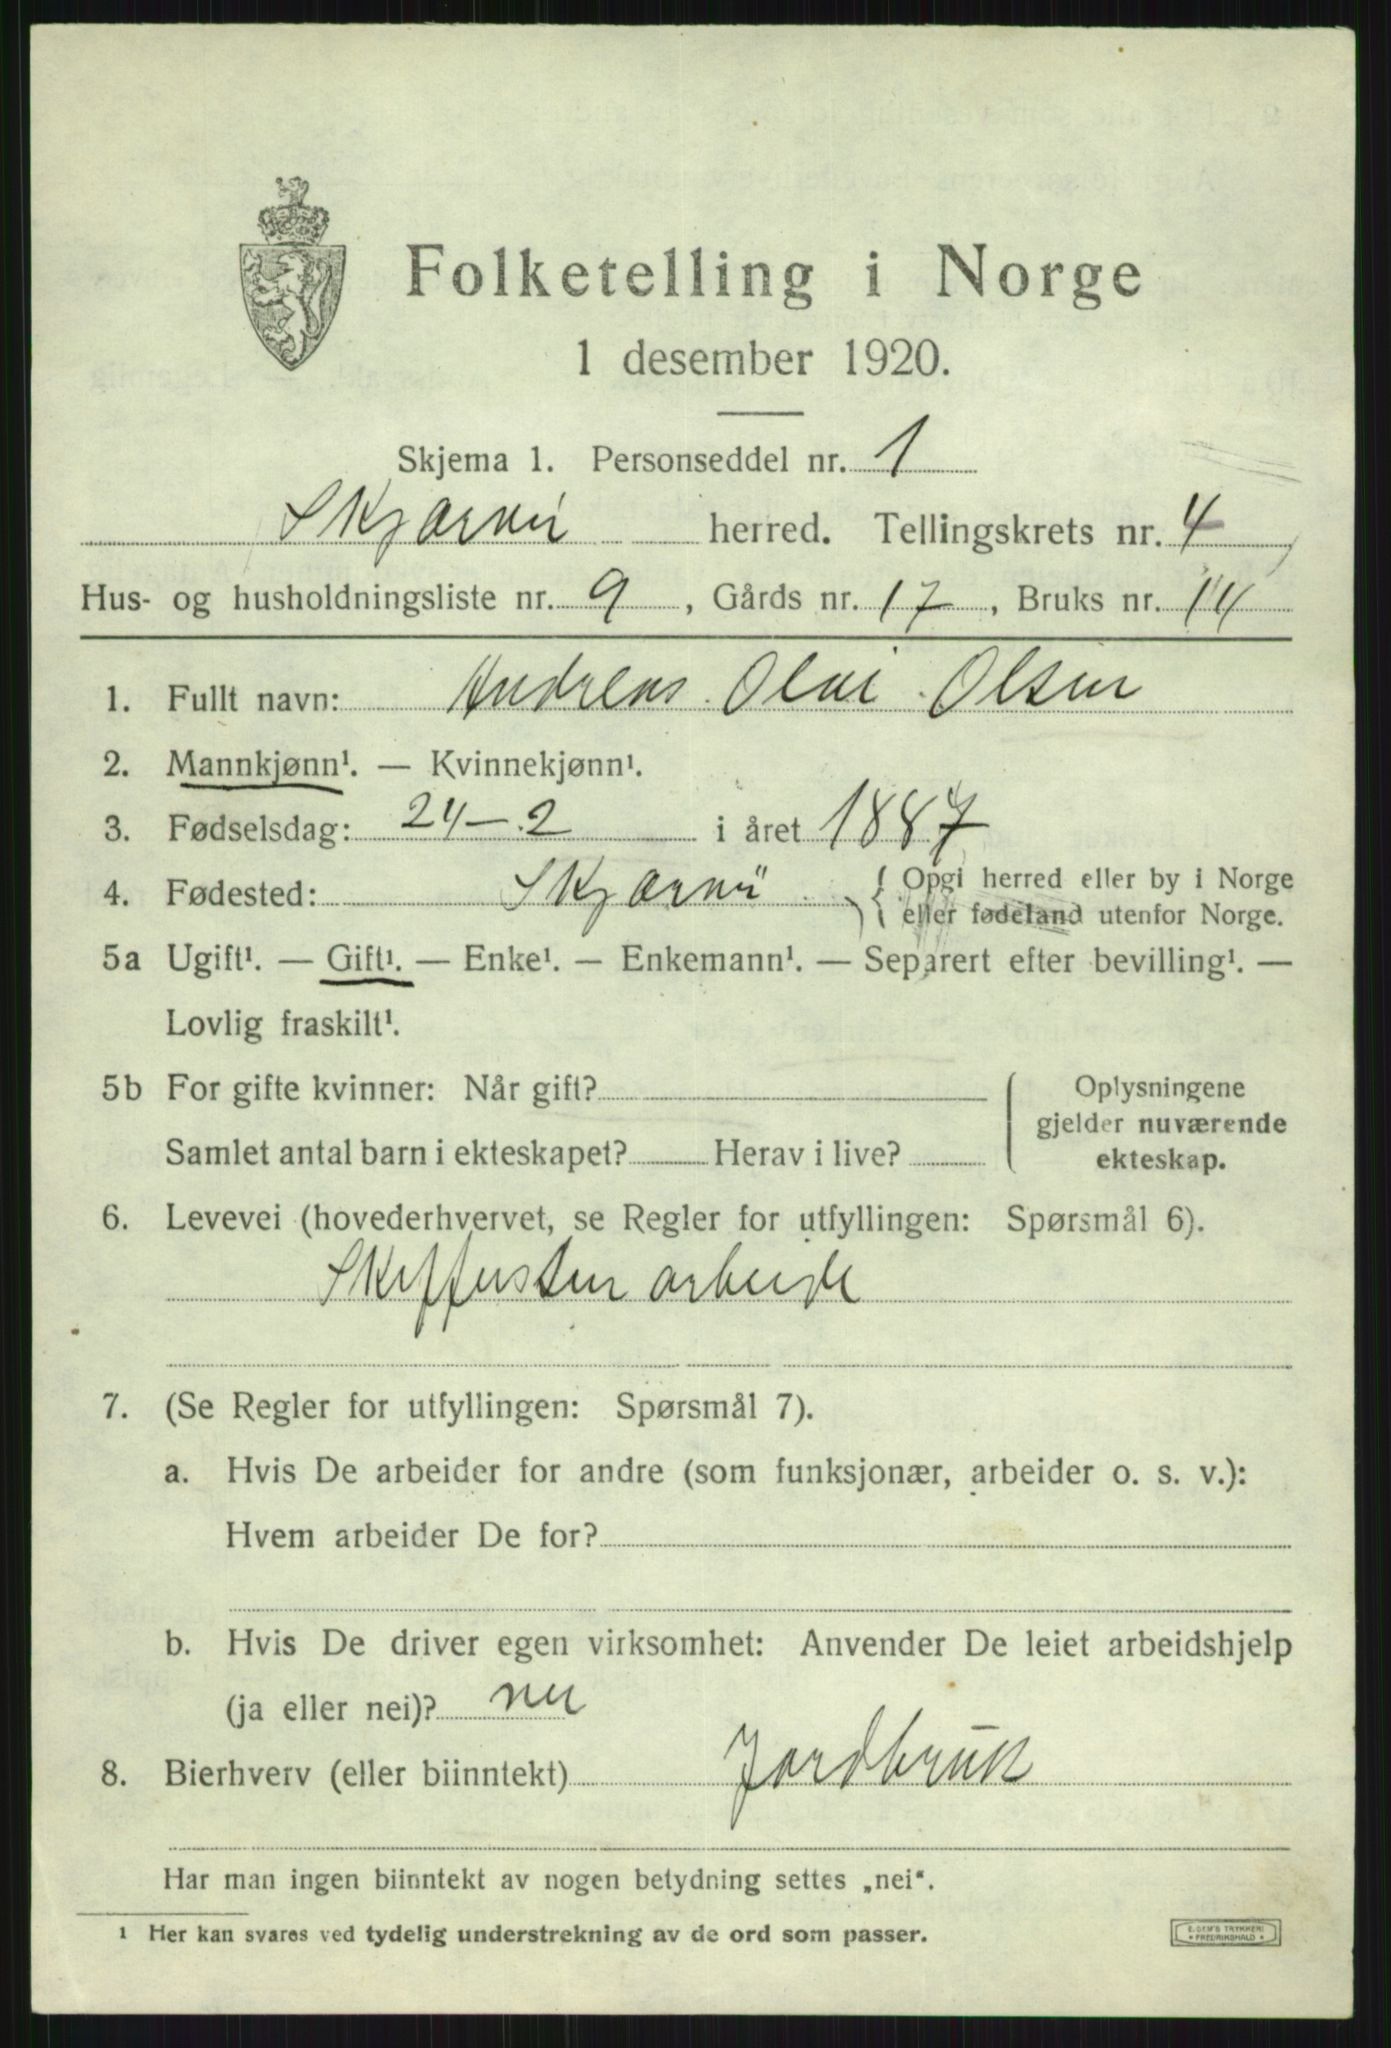 Folketelling i Norge
1 desember 1920.
Skjema 1. Personseddel nr. 1
Skjærvö herred. Tellingskrets nr. 4
Hus- og husholdningsliste nr. 9, Gårds nr. 17, Bruks nr. 14
1. Fullt navn: Andreas Olai Olsen
2. Mannkjønn¹. — Kvinnekjønn¹.
3. Fødselsdag: 24-2 i året 1887
4. Fødested: Skjærvö { Opgi herred eller by i Norge
eller fødeland utenfor Norge.
5a Ugift¹. — Gift¹. — Enke¹. — Enkemann¹. — Separert efter bevilling¹. —
Lovlig fraskilt¹.
5b For gifte kvinner: Når gift?
Samlet antal barn i ekteskapet? Herav i live?
Oplysningene
gjelder nuværende
ekteskap.
6. Levevei (hovederhvervet, se Regler for utfyllingen: Spørsmål 6).
arbeide
7. (Se Regler for utfyllingen: Spørsmål 7).
a. Hvis De arbeider for andre (som funksjonær, arbeider o. s. v.):
Hvem arbeider De for?
b. Hvis De driver egen virksomhet: Anvender De leiet arbeidshjelp
(ja eller nei)? nei
8. Bierhverv (eller biinntekt) Jordbruk
Har man ingen biinntekt av nogen betydning settes „nei“.
¹ Her kan svares ved tydelig understrekning av de ord som passer.
E. SEM'S TRYKKERI
* FREDRIKSHALD *